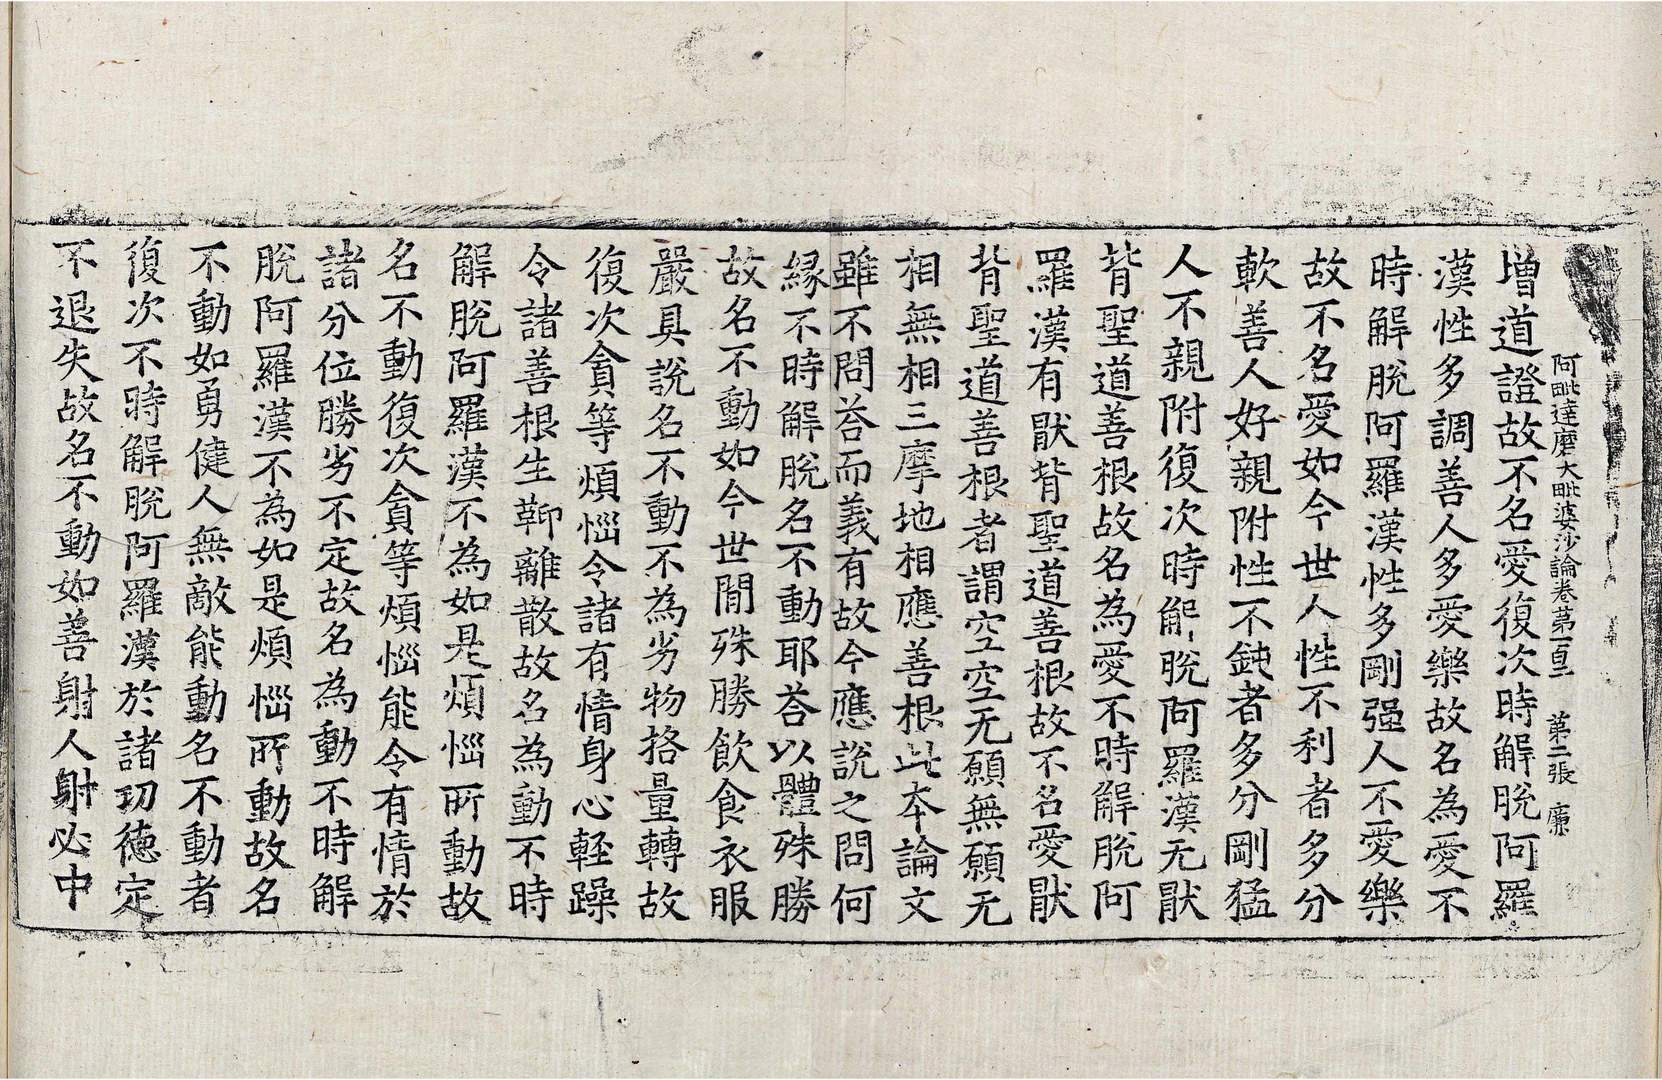 阿毗達磨大毗婆沙論卷第一百二 第二張 廉
增道證故不名愛復次時解脫阿羅
漢性多調善人多愛樂故名為愛不
時解脫阿羅漢性多剛强人不愛樂
故不名愛如今世人性不利者多分
軟善人好親附性不鈍者多分剛猛
人不親附復次時解脫阿羅漢无猒
背聖道善根故名為愛不時解脫阿
羅漢有猒背聖道善根故不名愛猒
背聖道善根者謂空空无願無願无
相無相三摩地相應善根此本論文
雖不問荅而義有故今應說之問何
緣不時解脫名不動耶荅以體殊勝
故名不動如今世閒殊勝飲食衣服
嚴具說名不動不為劣物挌量轉故
復次貪等煩惱令諸有情身心輕躁
令諸善根生離散故名為動不時
解脫阿羅漢不為如是煩惱所動故
名不動復次貪等煩惱能令有情於
諸分位勝劣不定故名為動不時解
脫阿羅漢不為如是煩惱所動故名
不動如勇健人無敵能動名不動者
復次不時解脫阿羅漢於諸功德定
不退失故名不動如善射人射必中